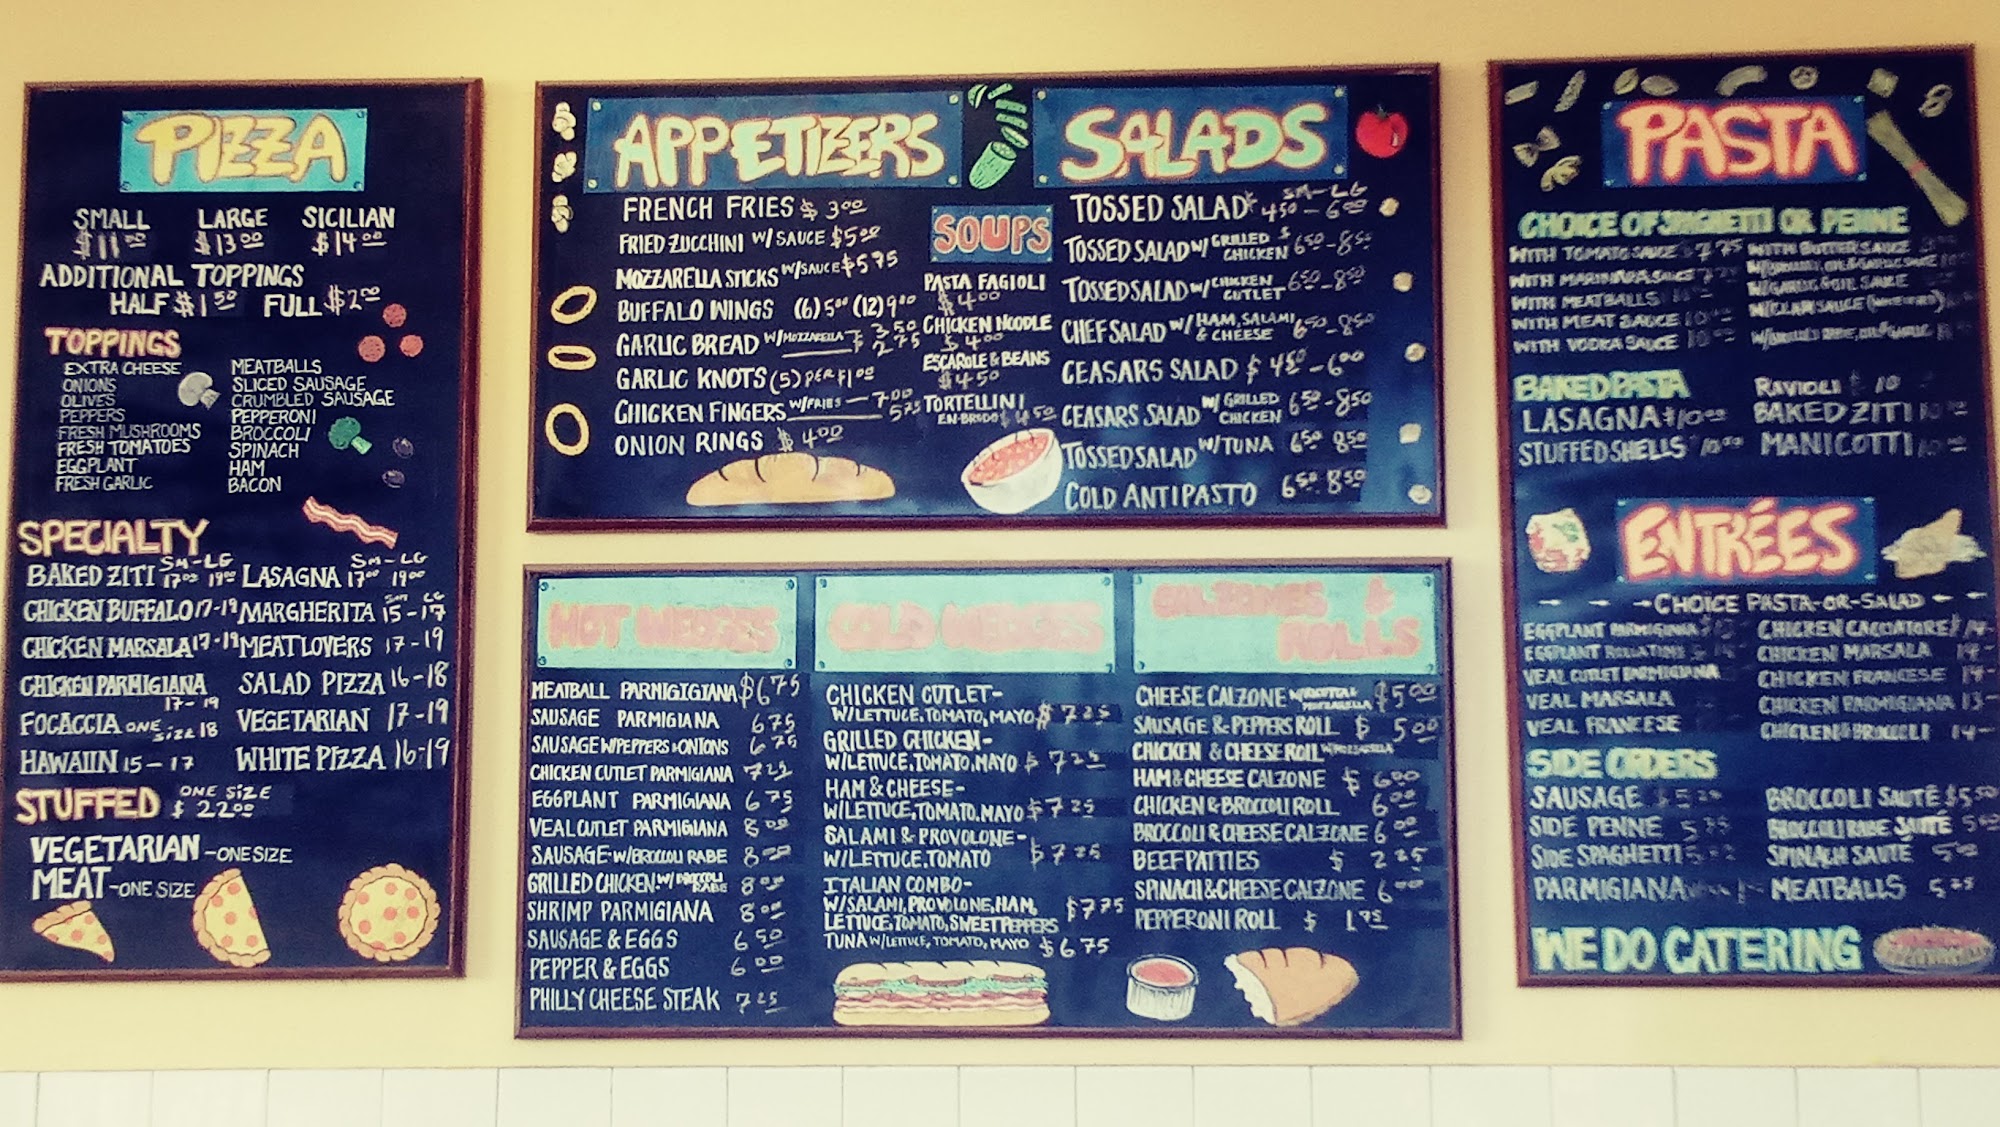 PIZZA
SMALL LARGE SICILIAN
$11.00 $13.00 $14.00
ADDITIONAL TOPPINGS
HALF $1.50 FULL $2.00
TOPPINGS
EXTRA CHEESE
ONIONS
OLIVES
PEPPERS
FRESH MUSHROOMS
FRESH TOMATOES
EGGPLANT
FRESH GARLIC
MEATBALLS
SLICED SAUSAGE
CRUMBLED SAUSAGE
PEPPERONI
BROCCOLI
SPINACH
HAM
BACON
SPECIALTY
SM-LG
BAKED ZITI 17.00 19.00
CHICKEN BUFFALO 17-19
CHICKEN MARSALA 17-19
CHICKEN PARMIGIANA
17-19
FOCACCIA ONE SIZE 18
HAWAIIN 15-17
SM-LG
LASAGNA 17.00 19.00
SM LG
MARGHERITA 15-17
MEATLOVERS 17-19
SALAD PIZZA 16-18
VEGETARIAN 17-19
WHITE PIZZA 16-19
STUFFED ONE SIZE
$22.00
VEGETARIAN - ONE SIZE
MEAT - ONE SIZE
APPETIZERS
FRENCH FRIES $3.00
FRIED ZUCCHINI W/SAUCE $5.00
MOZZARELLA STICKS W/SAUCE $5.75
BUFFALO WINGS (6) 5.00 (12) 9.00
GARLIC BREAD W/MOZZARELLA 3.50
2.75
GARLIC KNOTS (5) PER $1.00
CHICKEN FINGERS W/FRIES 7.00
5.75
ONION RINGS $4.00
SOUPS
PASTA FAGIOLI
$4.00
CHICKEN NOODLE
$4.00
ESCAROLE & BEANS
$4.50
TORTELLINI
EN-BRODO $4.50
SALADS
SM-LG
TOSSED SALAD 4.50-6.00
TOSSED SALAD W/GRILLED CHICKEN $6.50-8.50
TOSSED SALAD W/CHICKEN CUTLET 6.50-8.50
CHEF SALAD W/HAM, SALAMI & CHEESE 6.50-8.50
CEASARS SALAD $4.50-6.00
CEASARS SALAD W/GRILLED CHICKEN 6.50-8.50
TOSSED SALAD W/TUNA 6.50 8.50
COLD ANTIPASTO 6.50-8.50
HOT WEDGES
MEATBALL PARMIGIGIANA $6.75
SAUSAGE PARMIGIANA 6.75
SAUSAGE W/PEPPERS & ONIONS 6.75
CHICKEN CUTLET PARMIGIANA 7.25
EGGPLANT PARMIGIANA 6.75
VEAL CUTLET PARMIGIANA 8.00
SAUSAGE-W/BROCCOLI RABE 8.00
GRILLED CHICKEN-W/BROCCOLI RABE 8.00
SHRIMP PARMIGIANA 8.00
SAUSAGE & EGGS 6.50
PEPPER & EGGS 6.00
PHILLY CHEESE STEAK 7.25
COLD WEDGES
CHICKEN CUTLET-
W/LETTUCE, TOMATO, MAYO $7.25
GRILLED CHICKEN-
W/LETTUCE, TOMATO, MAYO $7.25
HAM & CHEESE-
W/LETTUCE, TOMATO, MAYO $7.25
SALAMI & PROVOLONE-
W/LETTUCE, TOMATO $7.25
ITALIAN COMBO-
W/SALAMI, PROVOLONE, HAM,
LETTUCE, TOMATO, SWEET PEPPERS $7.75
TUNA W/LETTUCE, TOMATO, MAYO $6.75
CALZONES &
ROLLS
CHEESE CALZONE $5.00
SAUSAGE & PEPPERS ROLL $5.00
CHICKEN & CHEESE ROLL W/MOZZARELLA
HAM & CHEESE CALZONE $6.00
CHICKEN & BROCCOLI ROLL 6.00
BROCCOLI & CHEESE CALZONE 6.00
BEEF PATTIES $2.25
SPINACH & CHEESE CALZONE 6.00
PEPPERONI ROLL $1.75
PASTA
CHOICE OF SPAGHETTI OR PENNE
WITH TOMATO SAUCE $7.75
WITH MARINARA SAUCE
WITH MEATBALLS
WITH MEAT SAUCE
WITH VODKA SAUCE
WITH BUTTER SAUCE
W/GARLIC & OIL
W/CLAM SAUCE
BAKED PASTA
LASAGNA $10.00
STUFFED SHELLS 10.00
RAVIOLI $10
BAKED ZITI
MANICOTTI
ENTRÉES
CHOICE PASTA-OR-SALAD
EGGPLANT PARMIGIANA
EGGPLANT ROLLATINI
VEAL CUTLET PARMIGIANA
VEAL MARSALA
VEAL FRANCESE
CHICKEN CACCIATORE $14-
CHICKEN MARSALA 14-
CHICKEN FRANCESE 14-
CHICKEN PARMIGIANA 13-
CHICKEN & BROCCOLI 14-
SIDE ORDERS
SAUSAGE
SIDE PENNE 5.75
SIDE SPAGHETTI
PARMIGIANA
BROCCOLI SAUTÉ $5.50
BROCCOLI RABE SAUTÉ
SPINACH SAUTÉ
MEATBALLS 5.25
WE DO CATERING